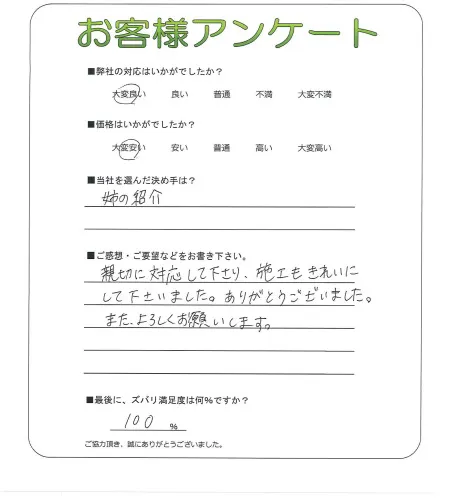 お客様アンケート
■弊社の対応はいかがでしたか？
大変良い 良い 普通 不満 大変不満
■価格はいかがでしたか？
大変安い 安い 普通 高い 大変高い
■当社を選んだ決め手は？
姉の紹介
■ご感想・ご要望などをお書き下さい。
親切に対応して下さり、施工もきれいに
して下さいました。ありがとうございました。
また、よろしくお願いします。
■最後に、ズバリ満足度は何％ですか？
100 ％
ご協力頂き、誠にありがとうございました。